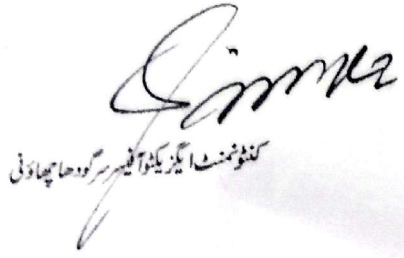 کنٹونمنٹ ایگزیکٹو آفیسر سرگودھا چھاؤنی